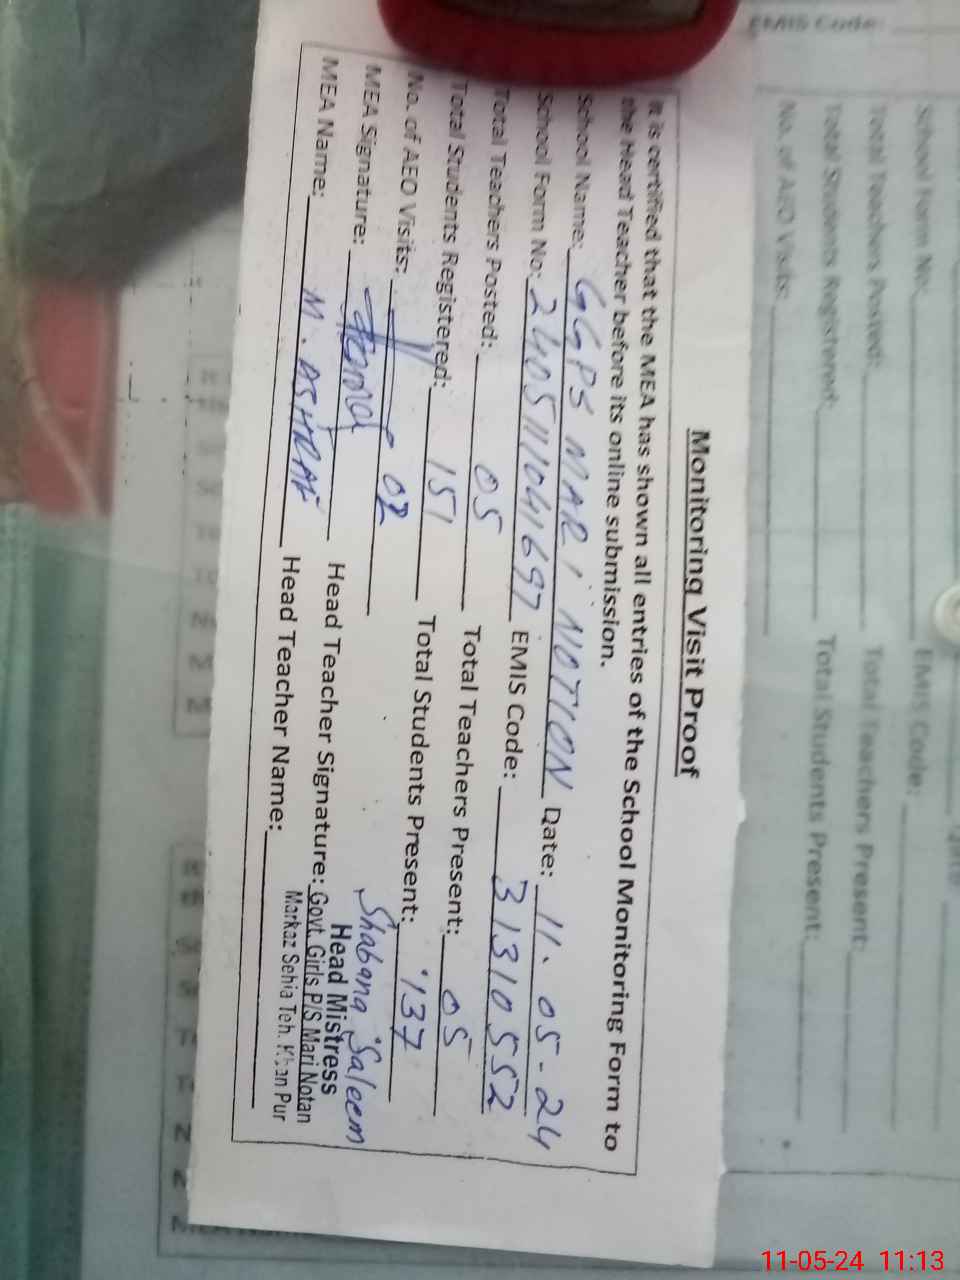 Monitoring Visit Proof
It is certified that the MEA has shown all entries of the School Monitoring Form to
the Head Teacher before its online submission.
School Name: GGPS MARI NOTION Date: 11.05-24
School Form No: 240511041697 EMIS Code: 31310552
Total Teachers Posted: 05 Total Teachers Present: 05
Total Students Registered: 151 Total Students Present: 137
No. of AEO Visits: 02
MEA Signature: Head Teacher Signature: Shabana Saleem
MEA Name: M. ASHRAF Head Teacher Name:
Head Mistress
Govt. Girls P/S Mari Notan
Markaz Sehja Teh. Khan Pur
EMIS Code:
School Form No: EMIS Code:
Total Teachers Posted: Total Teachers Present:
Total Students Registered: Total Students Present:
No. of AEO Visits:
11-05-24 11:13